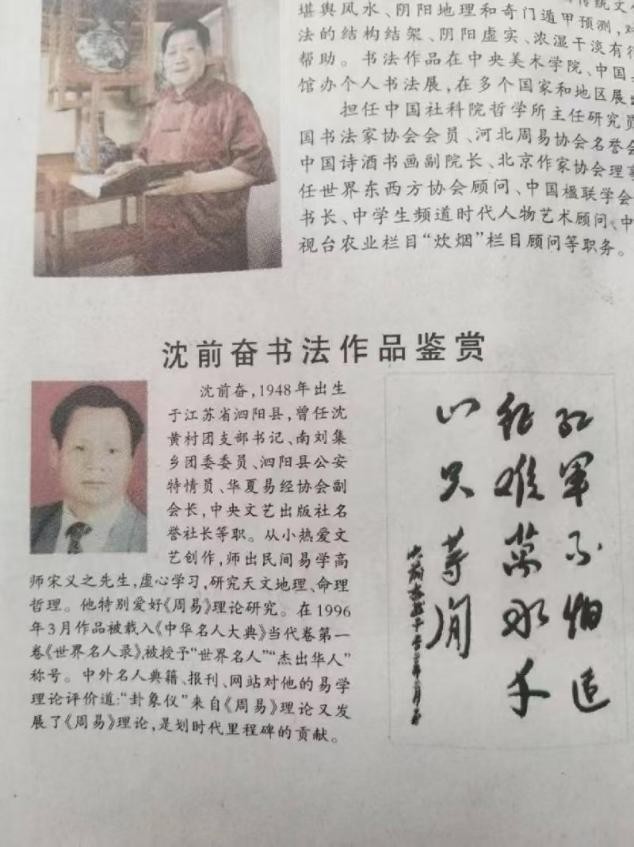 传统文
堪舆风水、阴阳地理和奇门遁甲预测,对
法的结构结架、阴阳虚实、浓湿干淡有很
帮助。书法作品在中央美术学院、中国
馆办个人书法展,在多个国家和地区展
担任中国社科院哲学所主任研究员
国书法家协会会员、河北周易协会名誉会
中国诗酒书画副院长、北京作家协会理事
任世界东西方协会顾问、中国楹联学会
书长、中学生频道时代人物艺术顾问、中
视台农业栏目“炊烟”栏目顾问等职务。
沈前奋书法作品鉴赏
沈前奋,1948年出生
于江苏省泗阳县,曾任沈
黄村团支部书记、南刘集
乡团委委员、泗阳县公安
特情员、华夏易经协会副
会长,中央文艺出版社名
誉社长等职。从小热爱文
艺创作,师出民间易学高
师宋义之先生,虚心学习,研究天文地理、命理
哲理。他特别爱好《周易》理论研究。在1996
年3月作品被载入《中华名人大典》当代卷第一
卷《世界名人录》被授予“世界名人”“杰出华人”
称号。中外名人典籍、报刊、网站对他的易学
理论评价道:“卦象仪”来自《周易》理论又发
展了《周易》理论,是划时代里程碑的贡献。
红军不怕远
征难万水千
山只等闲